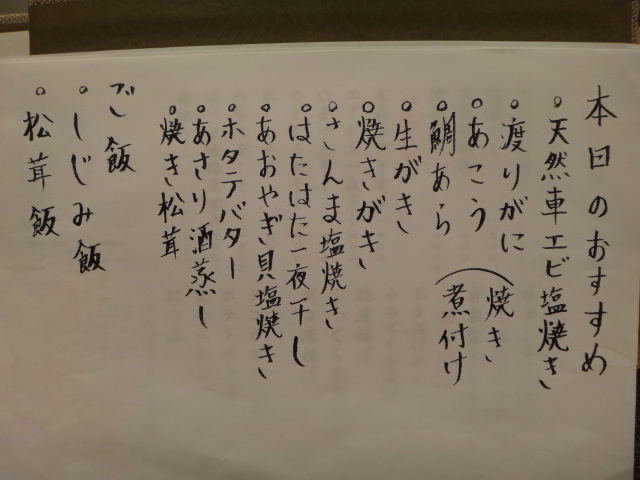 本日のおすすめ
○天然車エビ塩焼き
○渡りがに
○あこう
○鯛あら
(焼き
煮付け
○生がき
○焼きがき
○さんま塩焼き
○はたはた一夜干し
○あおやぎ貝塩焼き
○ホタテバター
○あさり酒蒸し
○焼き松茸
ご飯
○しじみ飯
○松茸飯